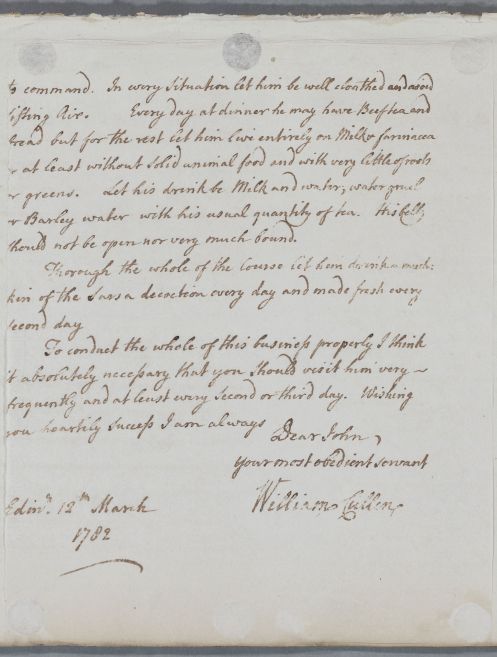 to command. In every Situation let him be well cloathed and avoid
Air. Every day at dinner he may have Beef tea and
Bread but for the rest let him live entirely on Milk & farinacea
or at Least without Solid animal food and with very little of roots
or greens. Let his drink be Milk and water, water gruel
or Barley water with his usual quantity of tea. His belly
should not be open nor very much bound.
Thorough the whole of the Course let him drink a much:
kin of the Sarsa decoction every day and made fresh every
second day
To conduct the whole of this business properly I think
it absolutely necessary that you Should visit him very ~
frequently and at least every Second or third day. Wishing
you heartily Success I am always
Dear John,
your most obedient servant
William Cullen
Edinr. 12th March
1782